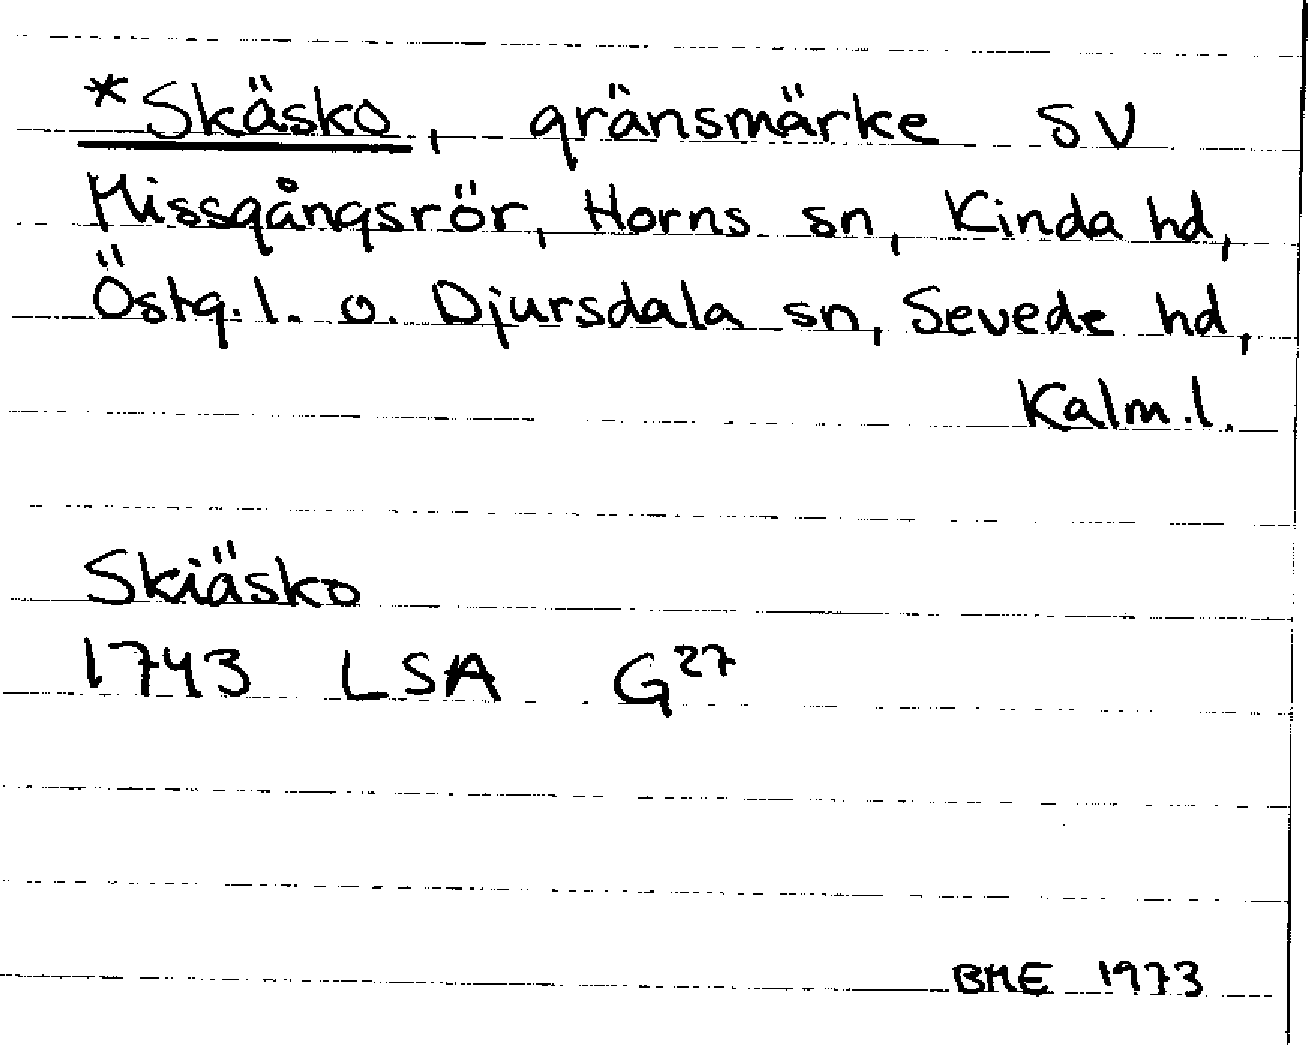 *Skäsko, gränsmärke SV
Missgångsrör, Horns sn, Kinda hd,
Östg.l. o. Djursdala sn, Sevede hd,
Kalm.l.
Skiäsko
1743 LSA G27
BME 1973